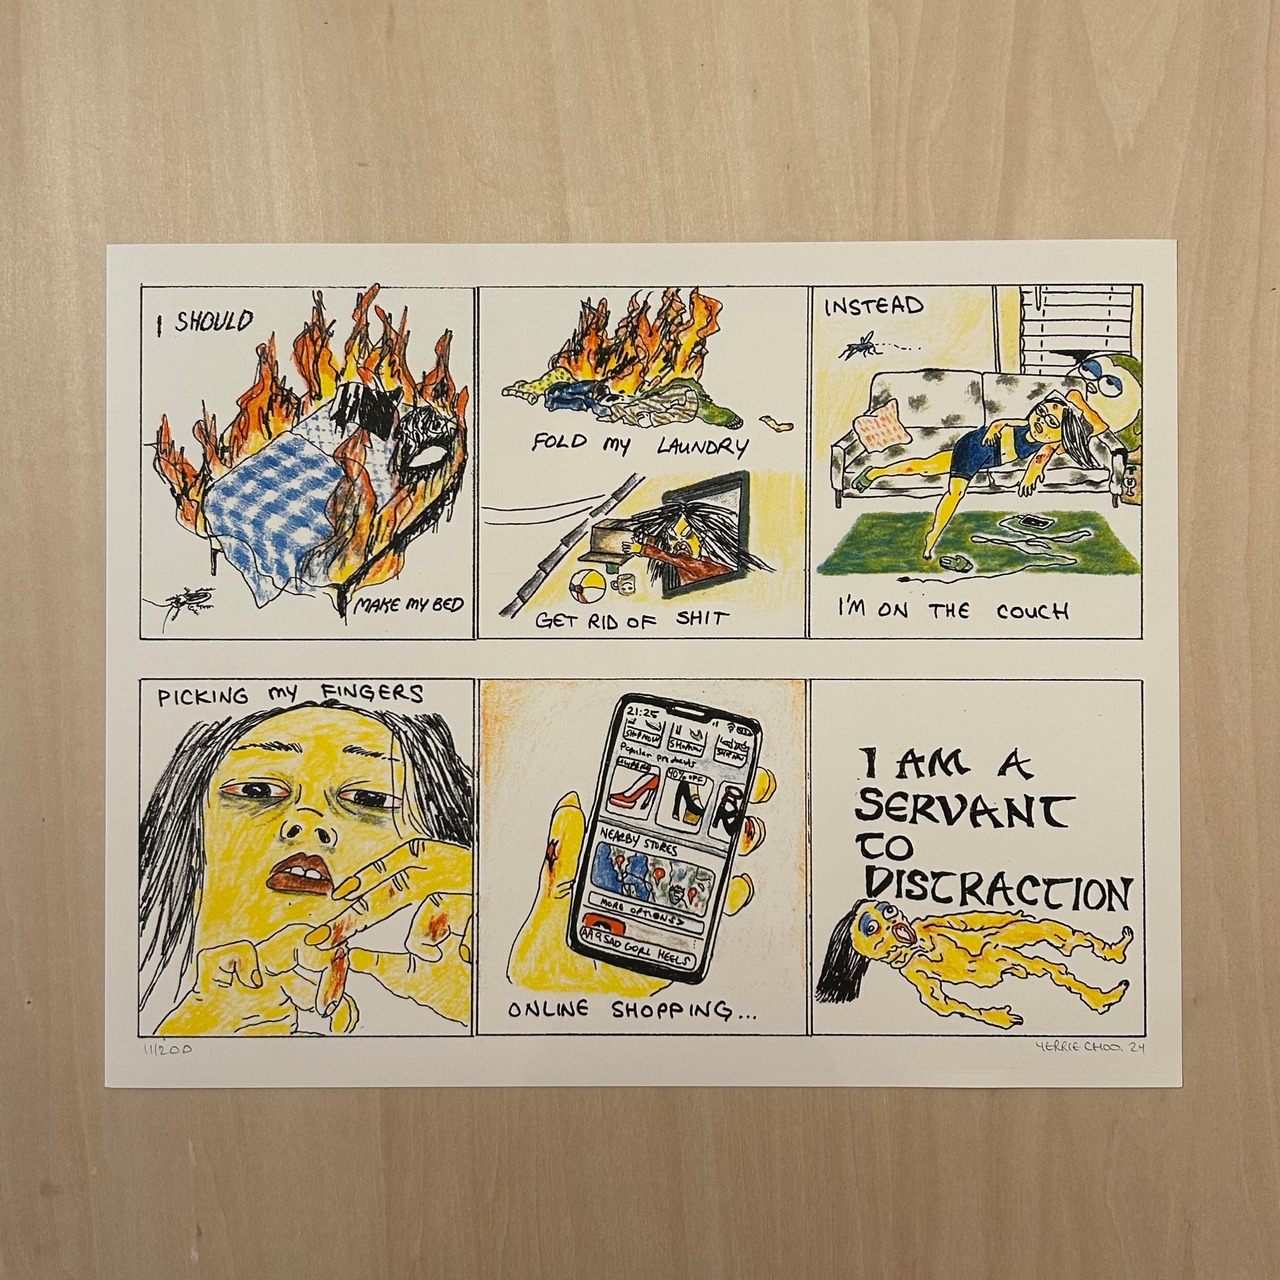 I SHOULD
MAKE MY BED
FOLD MY LAUNDRY
GET RID OF SHIT
INSTEAD
I'M ON THE COUCH
PICKING MY FINGERS
21:25
SHOP NOW
Popular products
40% OFF
NEARBY STORES
MORE OPTIONS
SAD GORL HEELS
ONLINE SHOPPING...
I AM A
SERVANT
TO
DISTRACTION
11/200
YERRIE CHOO. 24